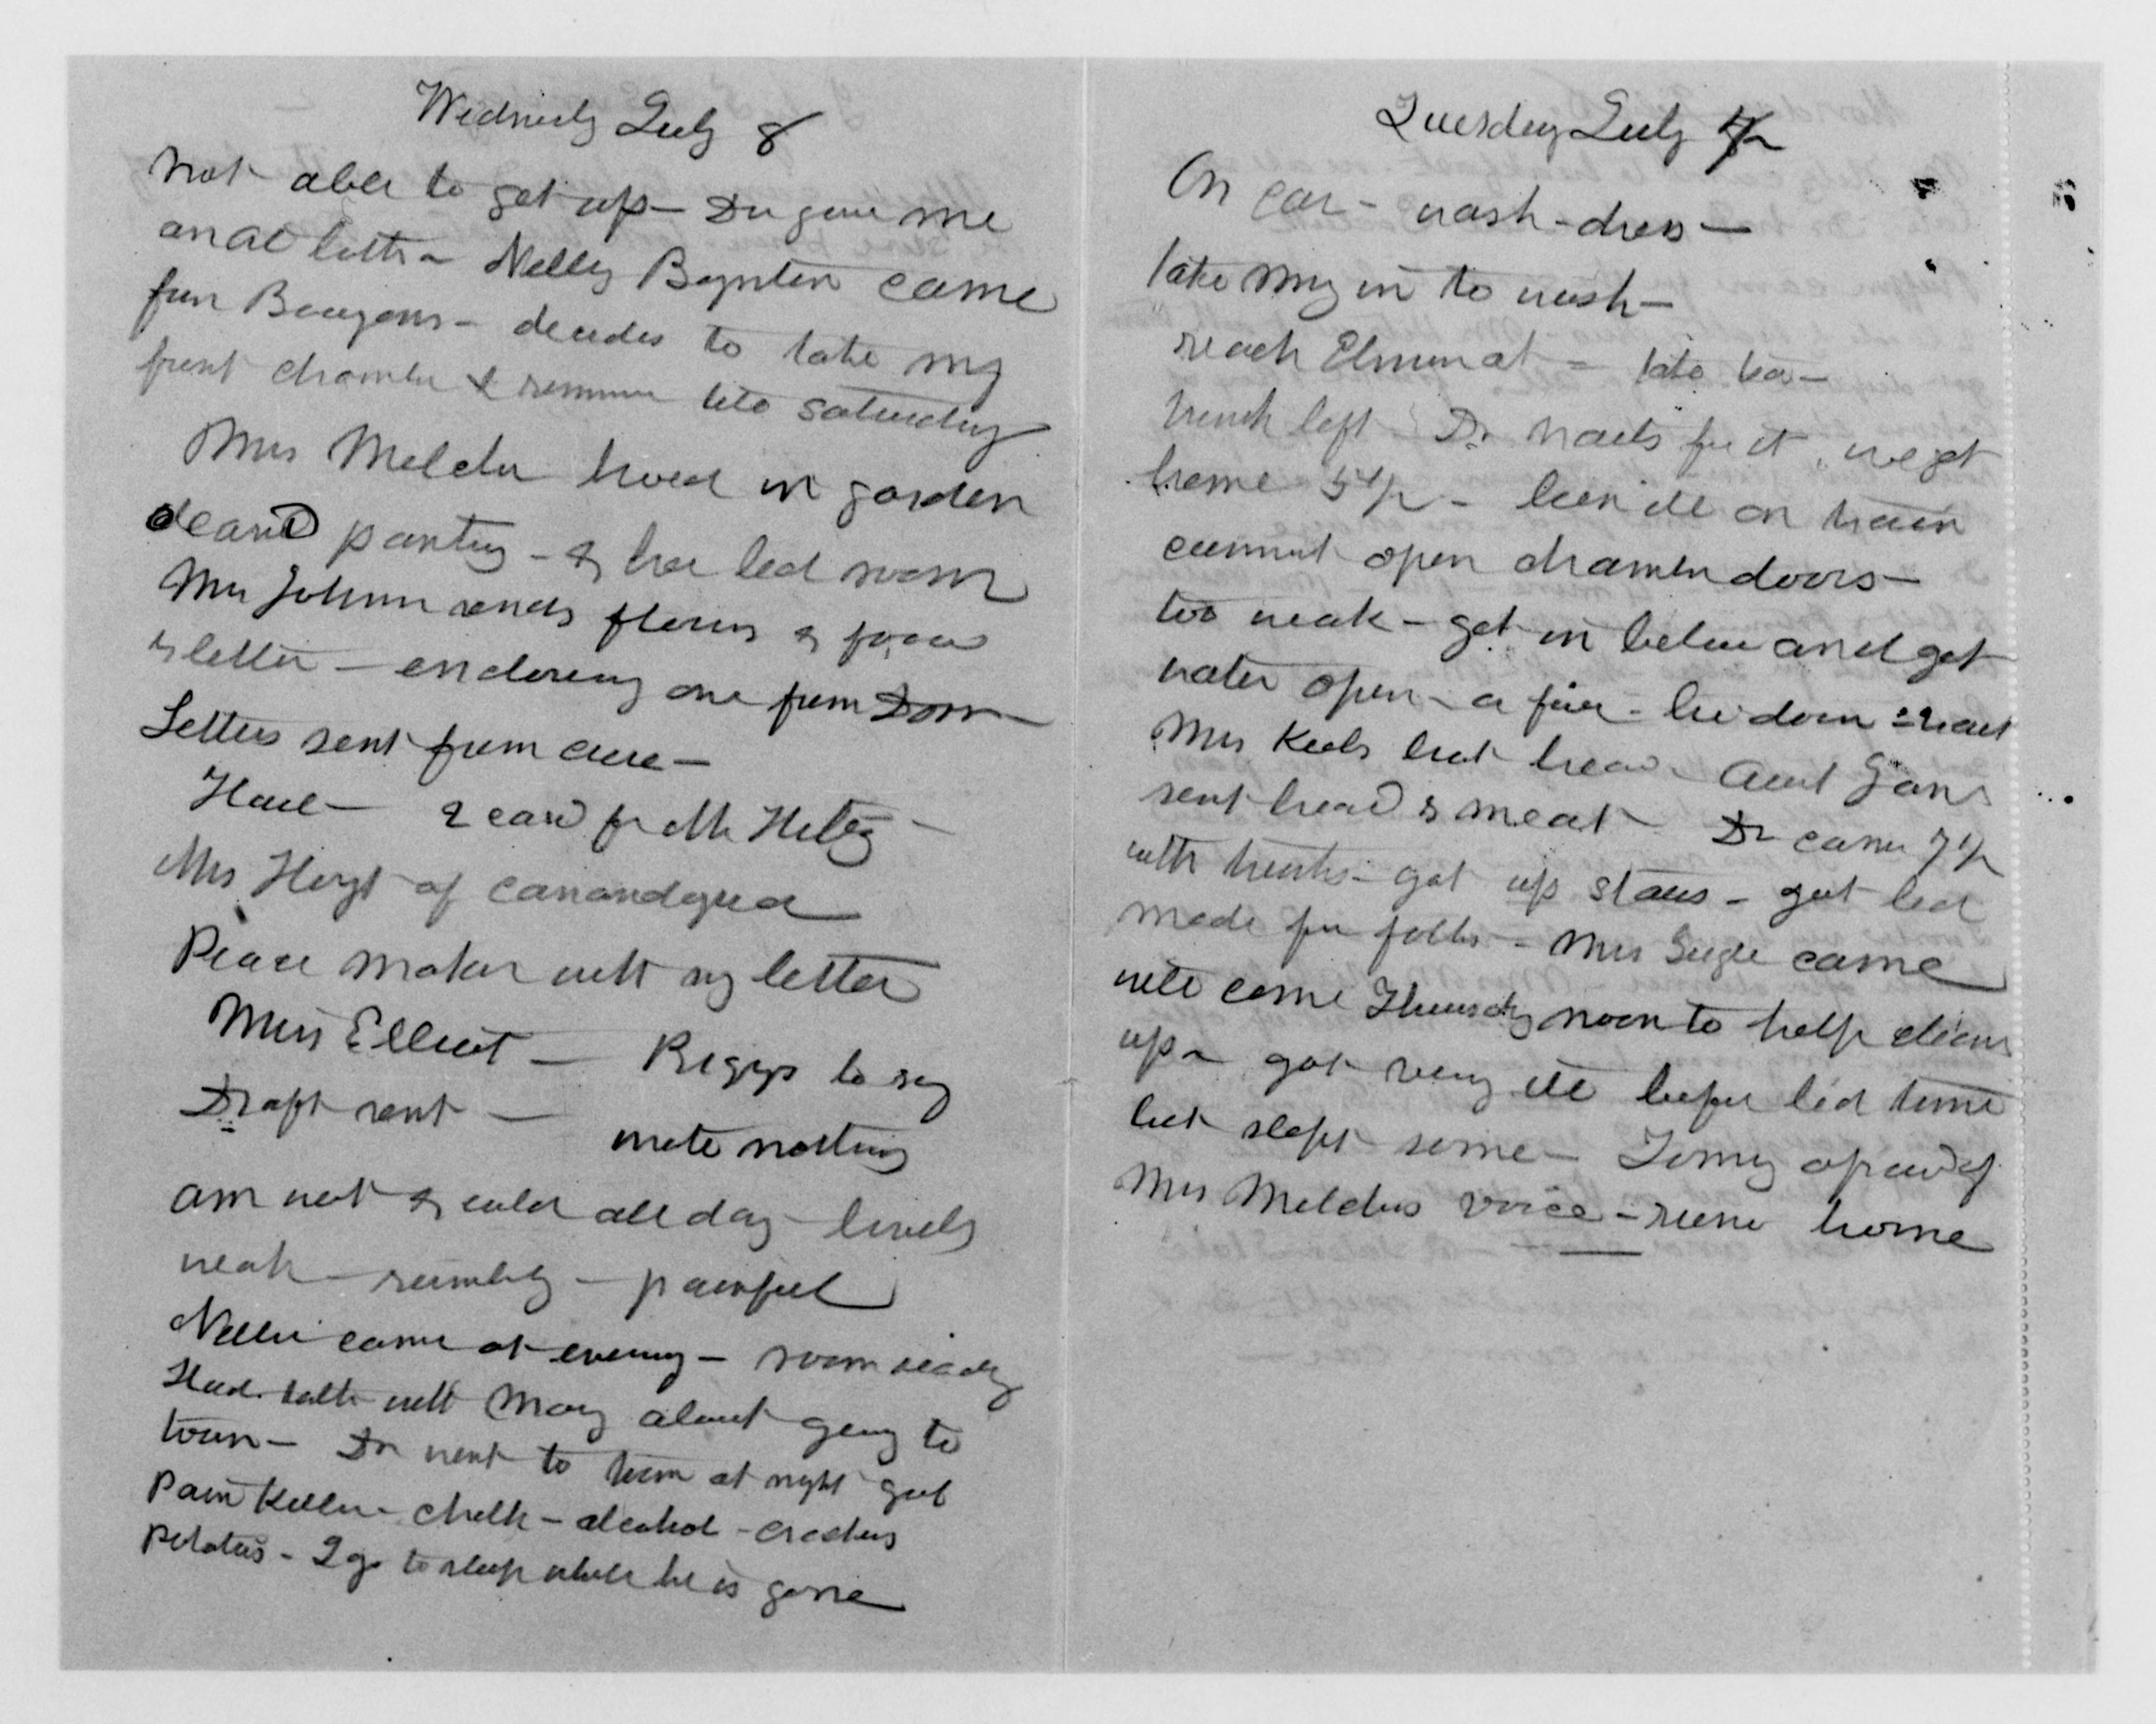 Wednesdy July 8
Not able to get up - Dr gave me
an al bath - Nelly Boynton came
from - decides to take my
front chamber & remain till saturday
Mrs Melder hoed in garden
cleand pantry - & her bed room
Mr Johnn sends flowers &
& letter - enclosing one from
Letters sent from
Hall - 2 card fr Mr Hitz -
Mrs Hoyt of Canandgua
Peace maker with my letter
Miss Elliott - Riggs to say
Draft sent -
write nothing
am wet & cold all day -
weak - - painful
Nellie came at evening - room ready
Had talk with May about going to
town - Dr went to town at night got
Pain Killer - chalk - alcohol - crackers
Potatoes - I go to sleep while he is gone
Tuesday July 7
On car - wash - dress -
take my in to wash -
reach Elmira at - take tea -
trunk left Dr waits for it, we get
home 5 1/2 - been ill on train
cannot open chamber doors -
too weak - get in below and get
water open - a fire - lie down
Mrs Keels hot bread - Aunt Jane
sent bread & meat - Dr came 7 1/2
with trunks - got up stairs - got bed
made for folks - Mrs came
will come Thursdy noon to help clean
up - got very ill before bed time
but slept some - Tomy afraid of
Mrs Melders voice - runs home